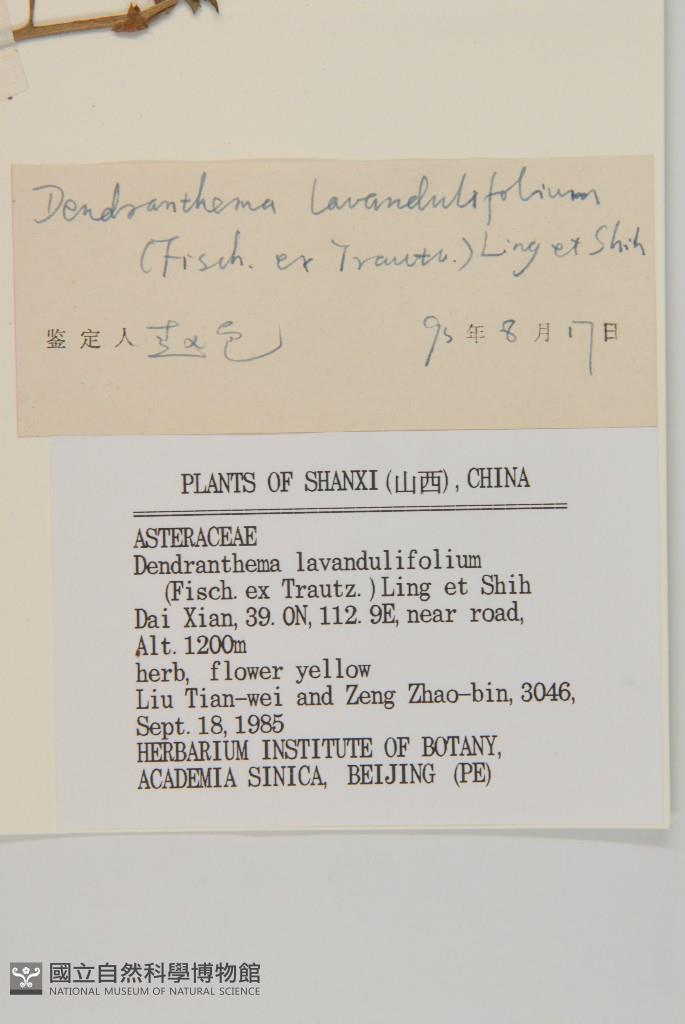 Dendranthema lavandulifolium
(Fisch. ex Trautv.) Ling et Shih
鉴定人
95年8月17日
PLANTS OF SHANXI(山西), CHINA
ASTERACEAE
Dendranthema lavandulifolium
(Fisch. ex Trautz.)Ling et Shih
Dai Xian, 39.0N, 112.9E, near road,
Alt. 1200m
herb, flower yellow
Liu Tian-wei and Zeng Zhao-bin, 3046,
Sept. 18, 1985
HERBARIUM INSTITUTE OF BOTANY,
ACADEMIA SINICA, BEIJING (PE)
國立自然科學博物館
NATIONAL MUSEUM OF NATURAL SCIENCE